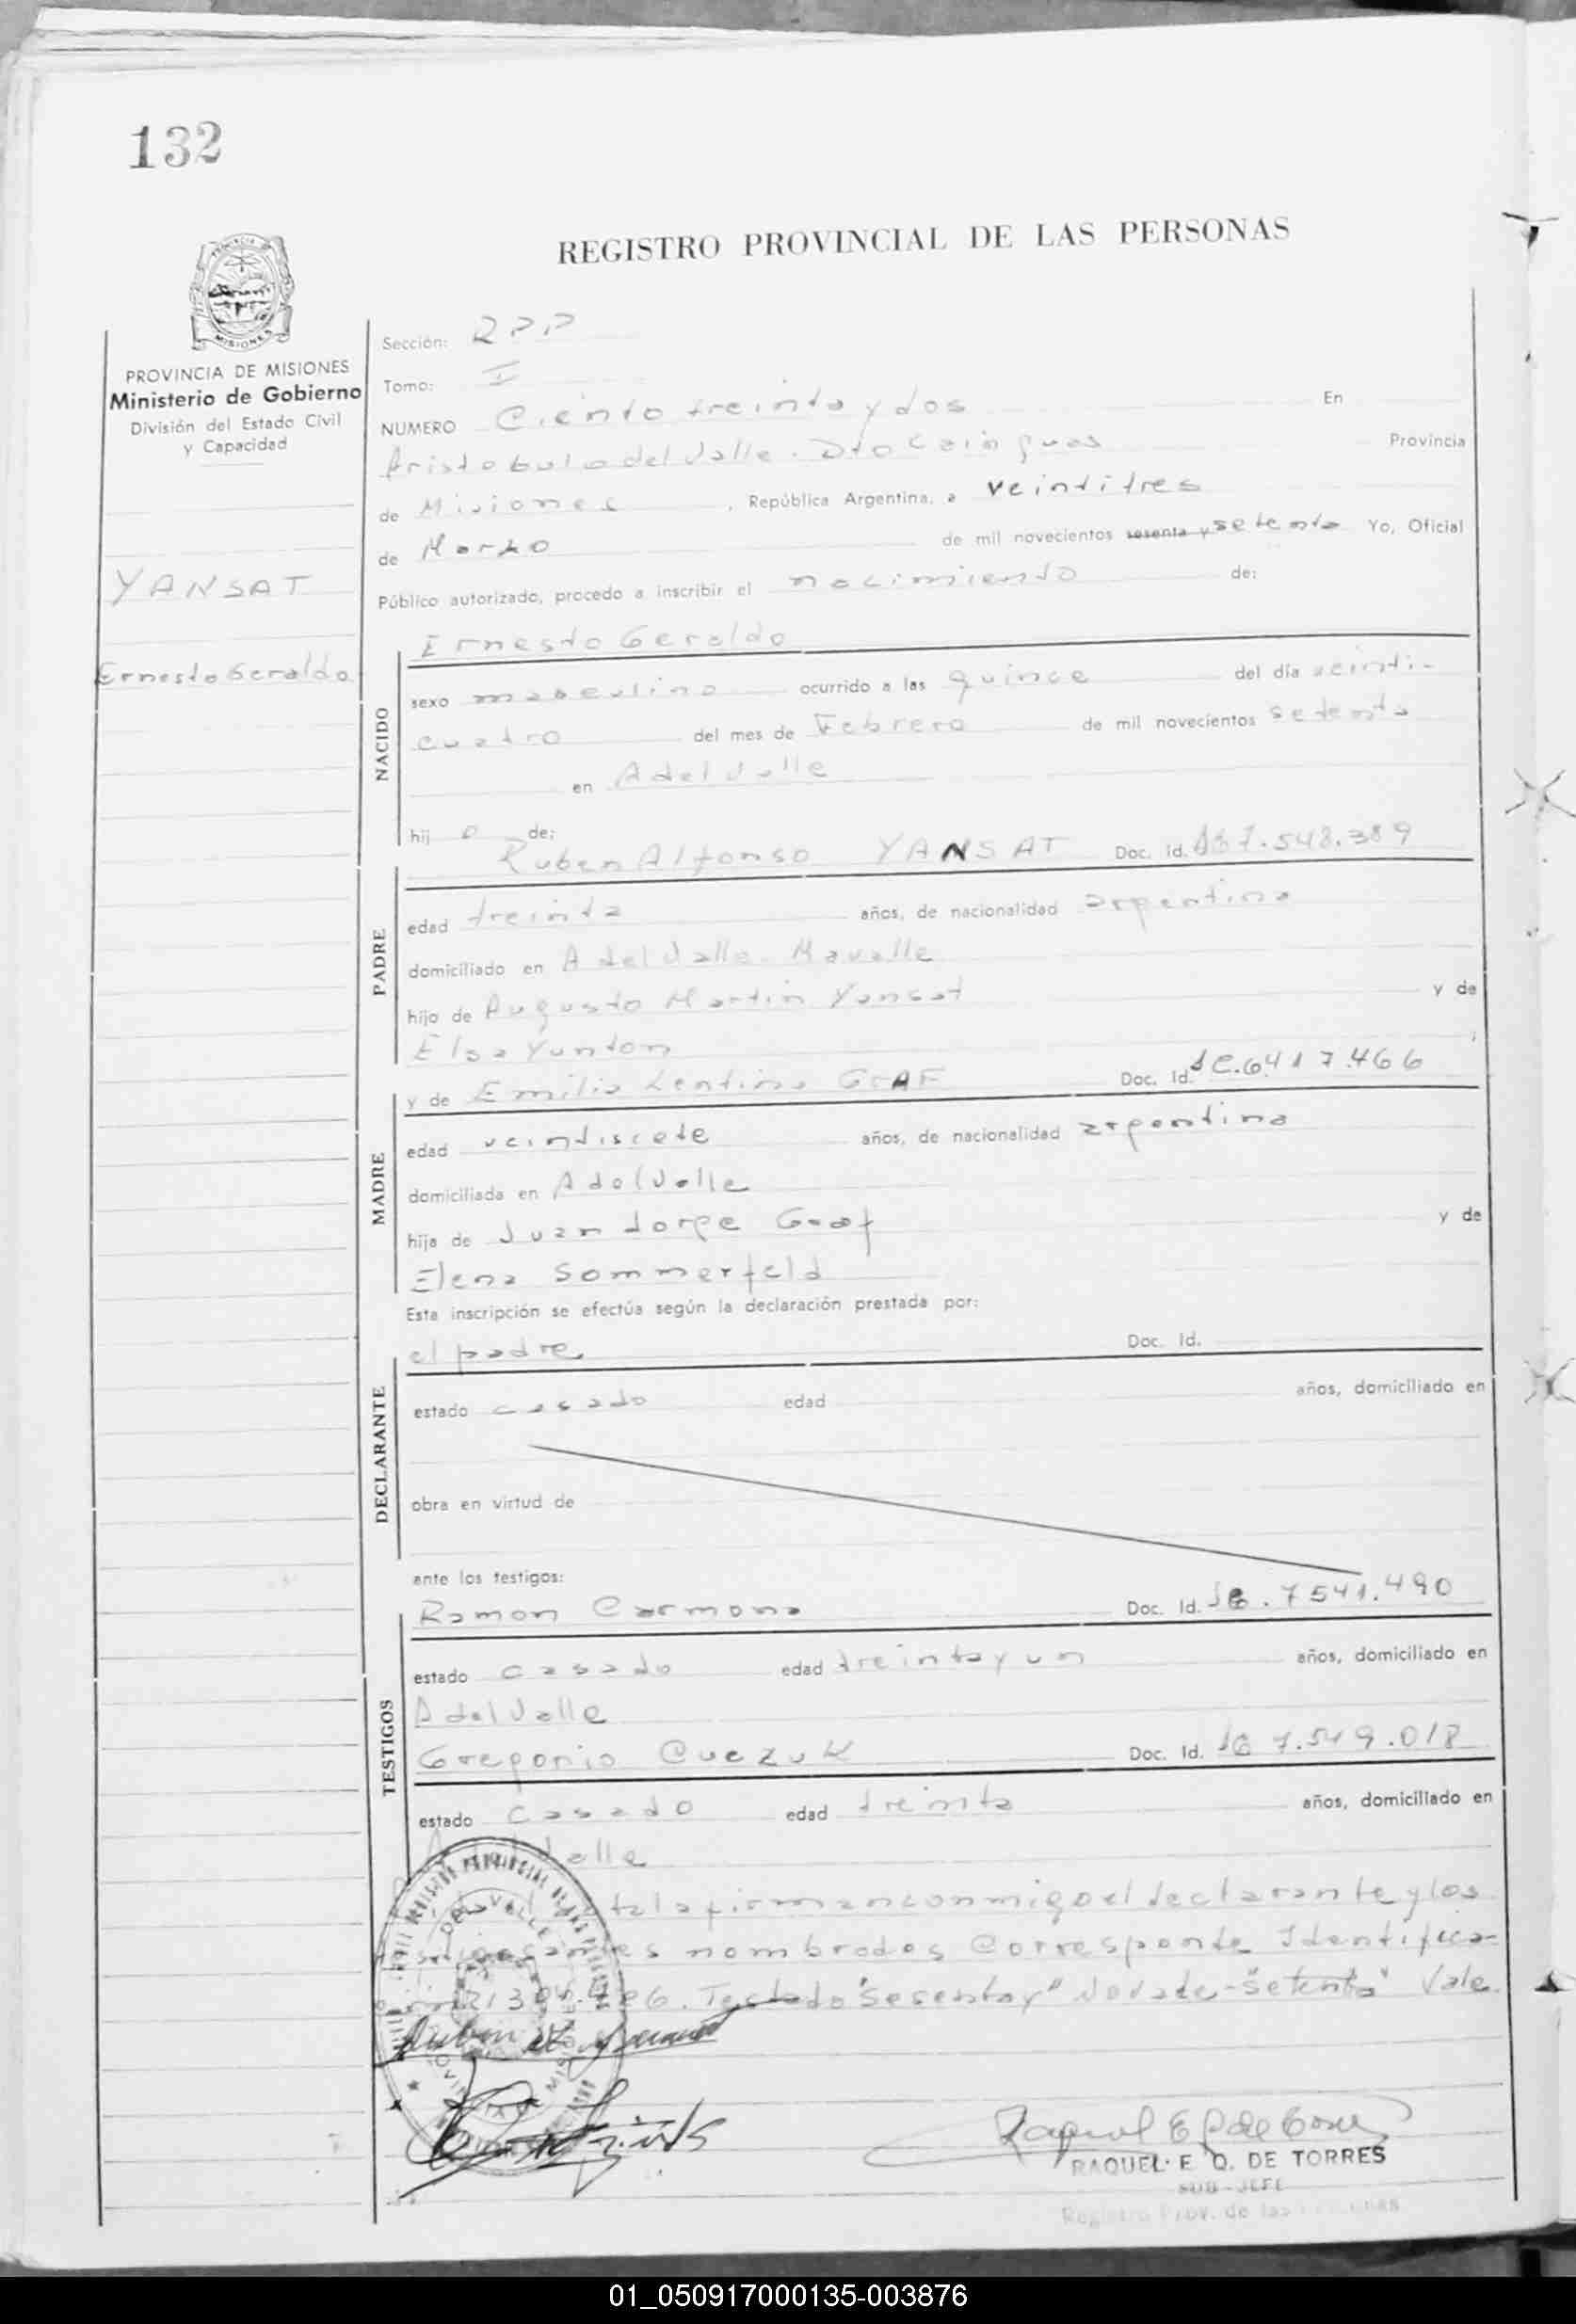 132
REGISTRO PROVINCIAL DE LAS PERSONAS
PROVINCIA DE MISIONES
Ministerio de Gobierno
División del Estado Civil
y Capacidad
YANSAT
Ernesto Geraldo
Sección: RPP
Tomo: I
NUMERO Ciento treinta y dos En
Aristobulo del Valle. Dto Cainguas Provincia
de Misiones, República Argentina, a veintitres
de Marzo de mil novecientos sesenta y setenta Yo, Oficial
Público autorizado, procedo a inscribir el nacimiento de:
Ernesto Geraldo
NACIDO
sexo masculino ocurrido a las quince del día veinti-
cuatro del mes de Febrero de mil novecientos setenta
en A del Valle
hij o de:
Ruben Alfonso YANSAT Doc. Id. 7.548.389
PADRE
edad treinta años, de nacionalidad argentina
domiciliado en A del Valle.
hijo de Augusto Martin Yansat y de
Elsa Yunton
y de Emilia GRAF Doc. Id. 6417.466
MADRE
edad veintisiete años, de nacionalidad argentina
domiciliada en A del Valle
hija de Juan Jorge Graf y de
Elena Sommerfeld
Esta inscripción se efectúa según la declaración prestada por:
el padre Doc. Id.
DECLARANTE
estado casado edad años, domiciliado en
obra en virtud de
ante los testigos:
Ramon Carmona Doc. Id. 7541.490
TESTIGOS
estado casado edad treinta y un años, domiciliado en
A del Valle
Gregorio Cuezuk Doc. Id. 7.549.018
estado casado edad treinta años, domiciliado en
Valle
firman conmigo el declarante y los
nombrados Corresponde Identifica-
Testado "sesenta y" "setenta" Vale
RAQUEL E Q. DE TORRES
SUB-JEFE
Registro Prov. de las
01_050917000135-003876